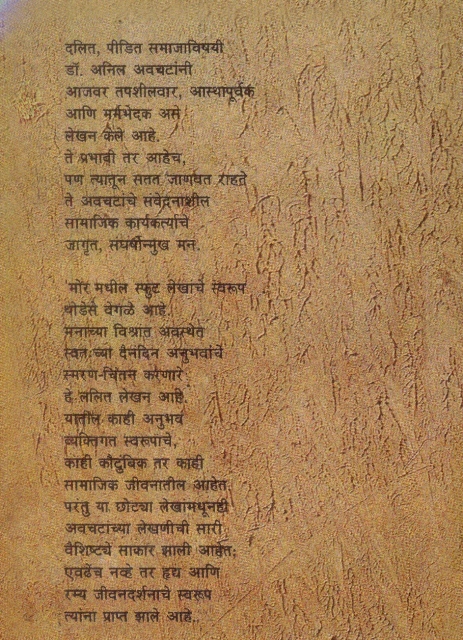 दलित, पीडित समाजाविषयी
डॉ. अनिल अवचटांनी
आजवर तपशीलवार, आस्थापूर्वक
आणि मर्मभेदक असे
लेखन केले आहे.
ते प्रभावी तर आहेच,
पण त्यातून सतत जाणवत राहते
ते अवचटांचे संवेदनाशील
सामाजिक कार्यकर्त्याचे
जागृत, संघर्षोन्मुख मन.
'मोर' मधील स्फुट लेखांचे स्वरूप
थोडेसे वेगळे आहे.
मनाच्या विश्रांत अवस्थेत
स्वतःच्या दैनंदिन अनुभवांचे
स्मरण-चिंतन करणारे
हे ललित लेखन आहे.
यातील काही अनुभव
व्यक्तिगत स्वरूपाचे,
काही कौटुंबिक तर काही
सामाजिक जीवनातील आहेत.
परंतु या छोट्या लेखांमधूनही
अवचटांच्या लेखणीची सारी
वैशिष्ट्ये साकार झाली आहेत;
एवढेच नव्हे तर हृद्य आणि
रम्य जीवनदर्शनाचे स्वरूप
त्यांना प्राप्त झाले आहे..